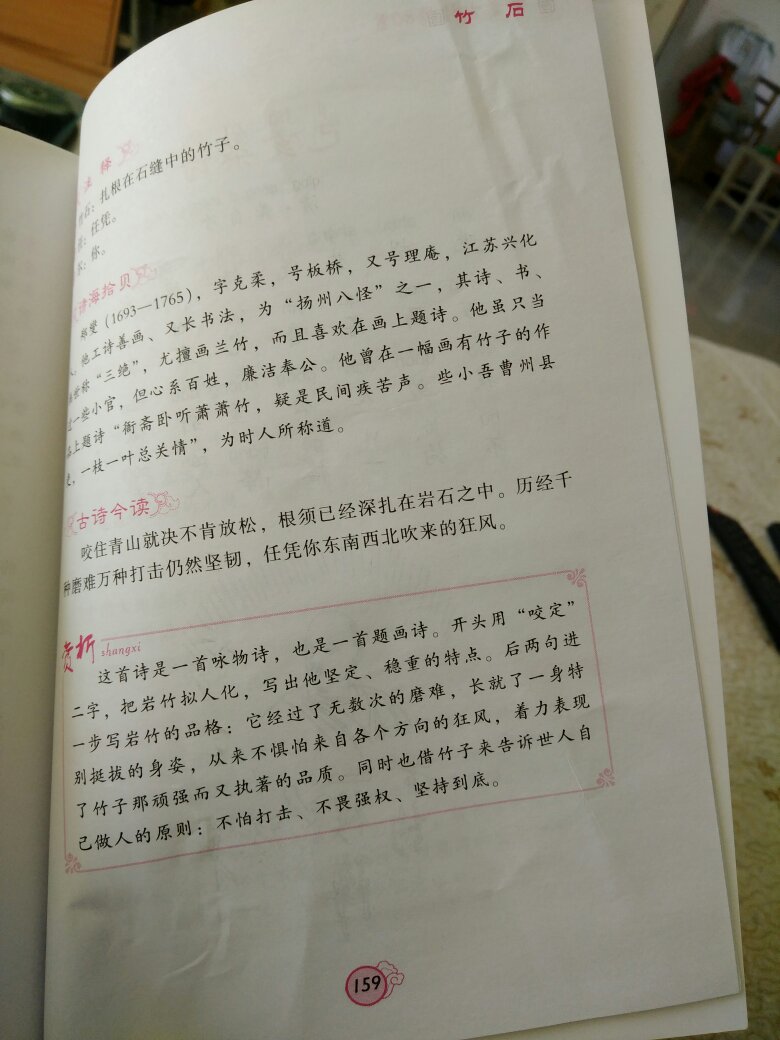 竹 石
注 释
石：扎根在石缝中的竹子。
：任凭。
：你。
诗海拾贝
郑燮（1693—1765），字克柔，号板桥，又号理庵，江苏兴化
。他工诗善画、又长书法，为“扬州八怪”之一，其诗、书、
世称“三绝”，尤擅画兰竹，而且喜欢在画上题诗。他虽只当
过一些小官，但心系百姓，廉洁奉公。他曾在一幅画有竹子的作
品上题诗“衙斋卧听萧萧竹，疑是民间疾苦声。些小吾曹州县
吏，一枝一叶总关情”，为时人所称道。
古诗今读
咬住青山就决不肯放松，根须已经深扎在岩石之中。历经千
种磨难万种打击仍然坚韧，任凭你东南西北吹来的狂风。
赏析 shangxi
这首诗是一首咏物诗，也是一首题画诗。开头用“咬定”
二字，把岩竹拟人化，写出他坚定、稳重的特点。后两句进
一步写岩竹的品格：它经过了无数次的磨难，长就了一身特
别挺拔的身姿，从来不惧怕来自各个方向的狂风，着力表现
了竹子那顽强而又执著的品质。同时也借竹子来告诉世人自
己做人的原则：不怕打击、不畏强权、坚持到底。
159